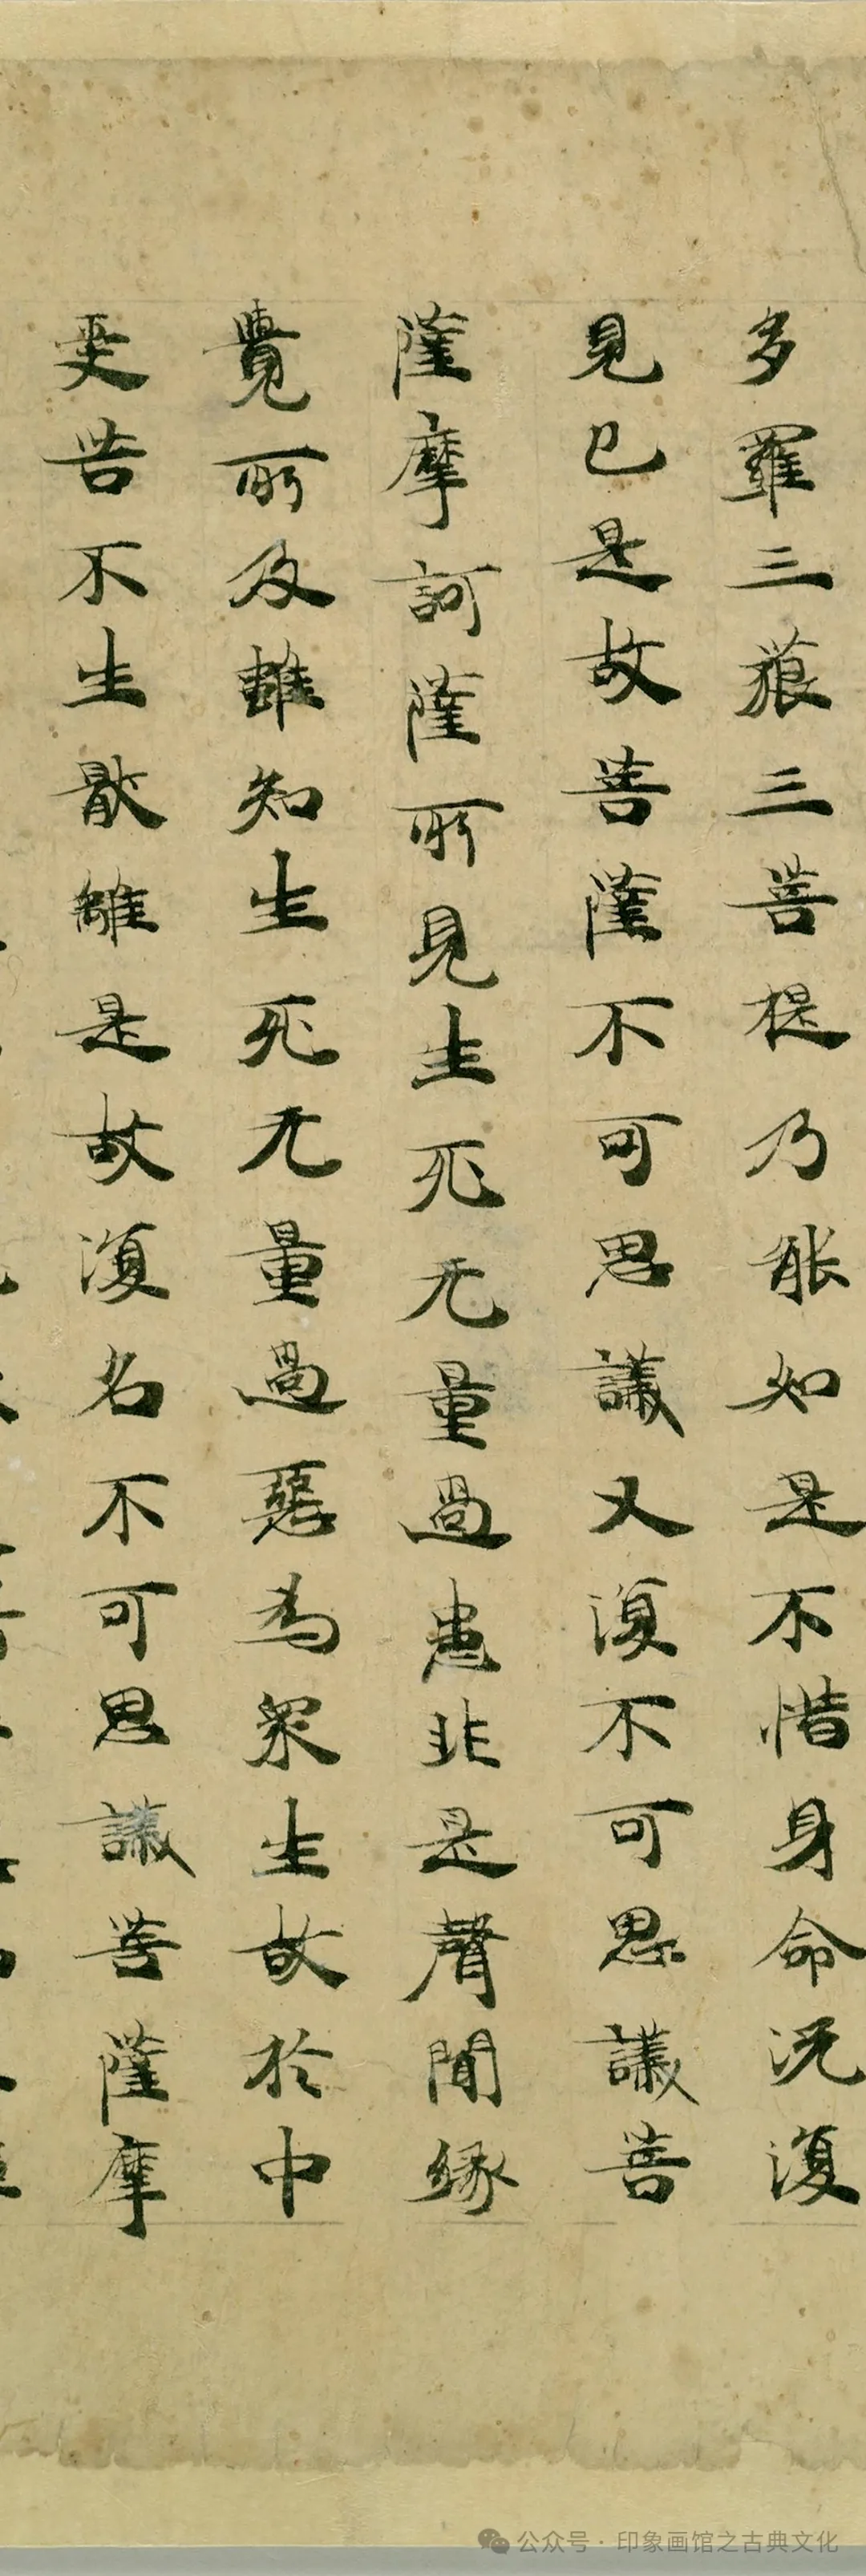 多羅三藐三菩提乃能如是不惜身命況復
見已是故菩薩不可思議又復不可思議菩
薩摩訶薩所見生死无量過患非是聲聞緣
覺所及雖知生死无量過惡為眾生故於中
受苦不生猒離是故復名不可思議菩薩摩
公众号·印象画馆之古典文化